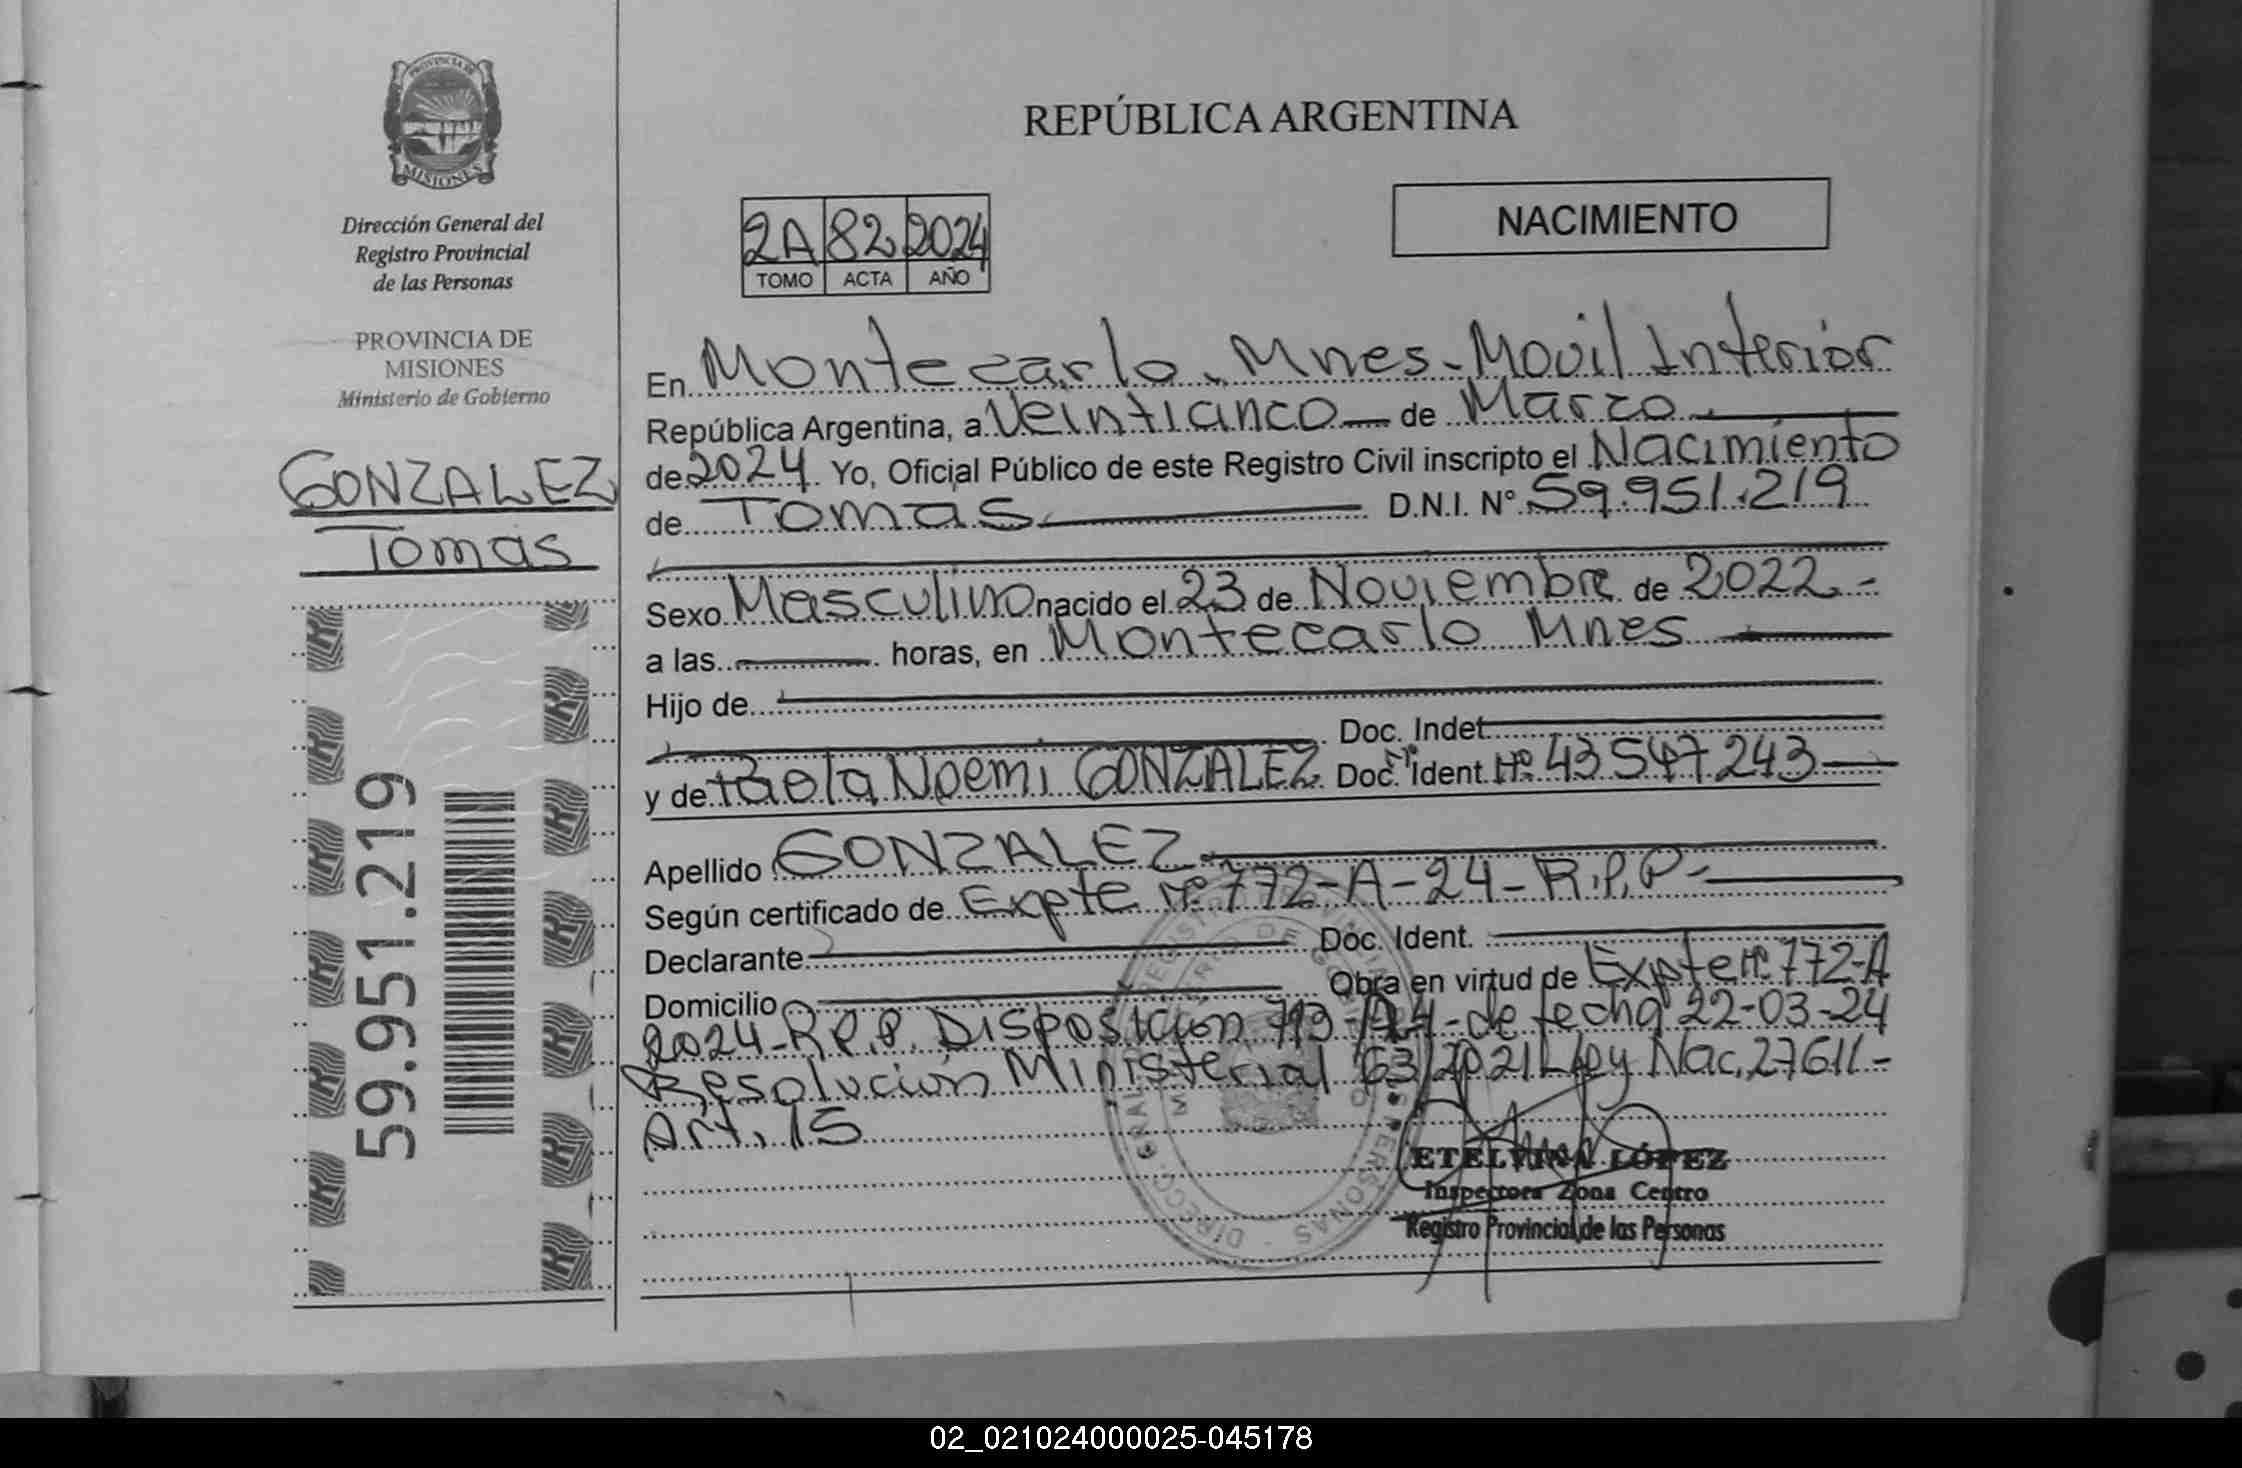 PROVINCIA DE
MISIONES
Dirección General del
Registro Provincial
de las Personas
PROVINCIA DE
MISIONES
Ministerio de Gobierno
GONZALEZ
Tomas
59.951.219
REPÚBLICA ARGENTINA
NACIMIENTO
2A 82 2024
TOMO ACTA AÑO
En Montecarlo - Mnes - Movil Interior
República Argentina, a Veinticinco de Marzo
de 2024 Yo, Oficial Público de este Registro Civil inscripto el Nacimiento
de Tomas D.N.I. N° 59.951.219
Sexo Masculino nacido el 23 de Noviembre de 2022.-
a las horas, en Montecarlo Mnes
Hijo de
Doc. Indet
y de Paola Noemi GONZALEZ Doc. Ident. N° 43 547 243
Apellido GONZALEZ
Según certificado de Expte N° 772-A-24-R.P.P-
Declarante Doc. Ident.
Domicilio Obra en virtud de Expte N° 772-A
2024-R.P.P. Disposición de fecha 22-03-24
Resolución Ministerial 63/2021 Ley Nac. 27611-
Art. 15
ETELVINA LÓPEZ
Inspectora Zona Centro
Registro Provincial de las Personas
02_021024000025-045178